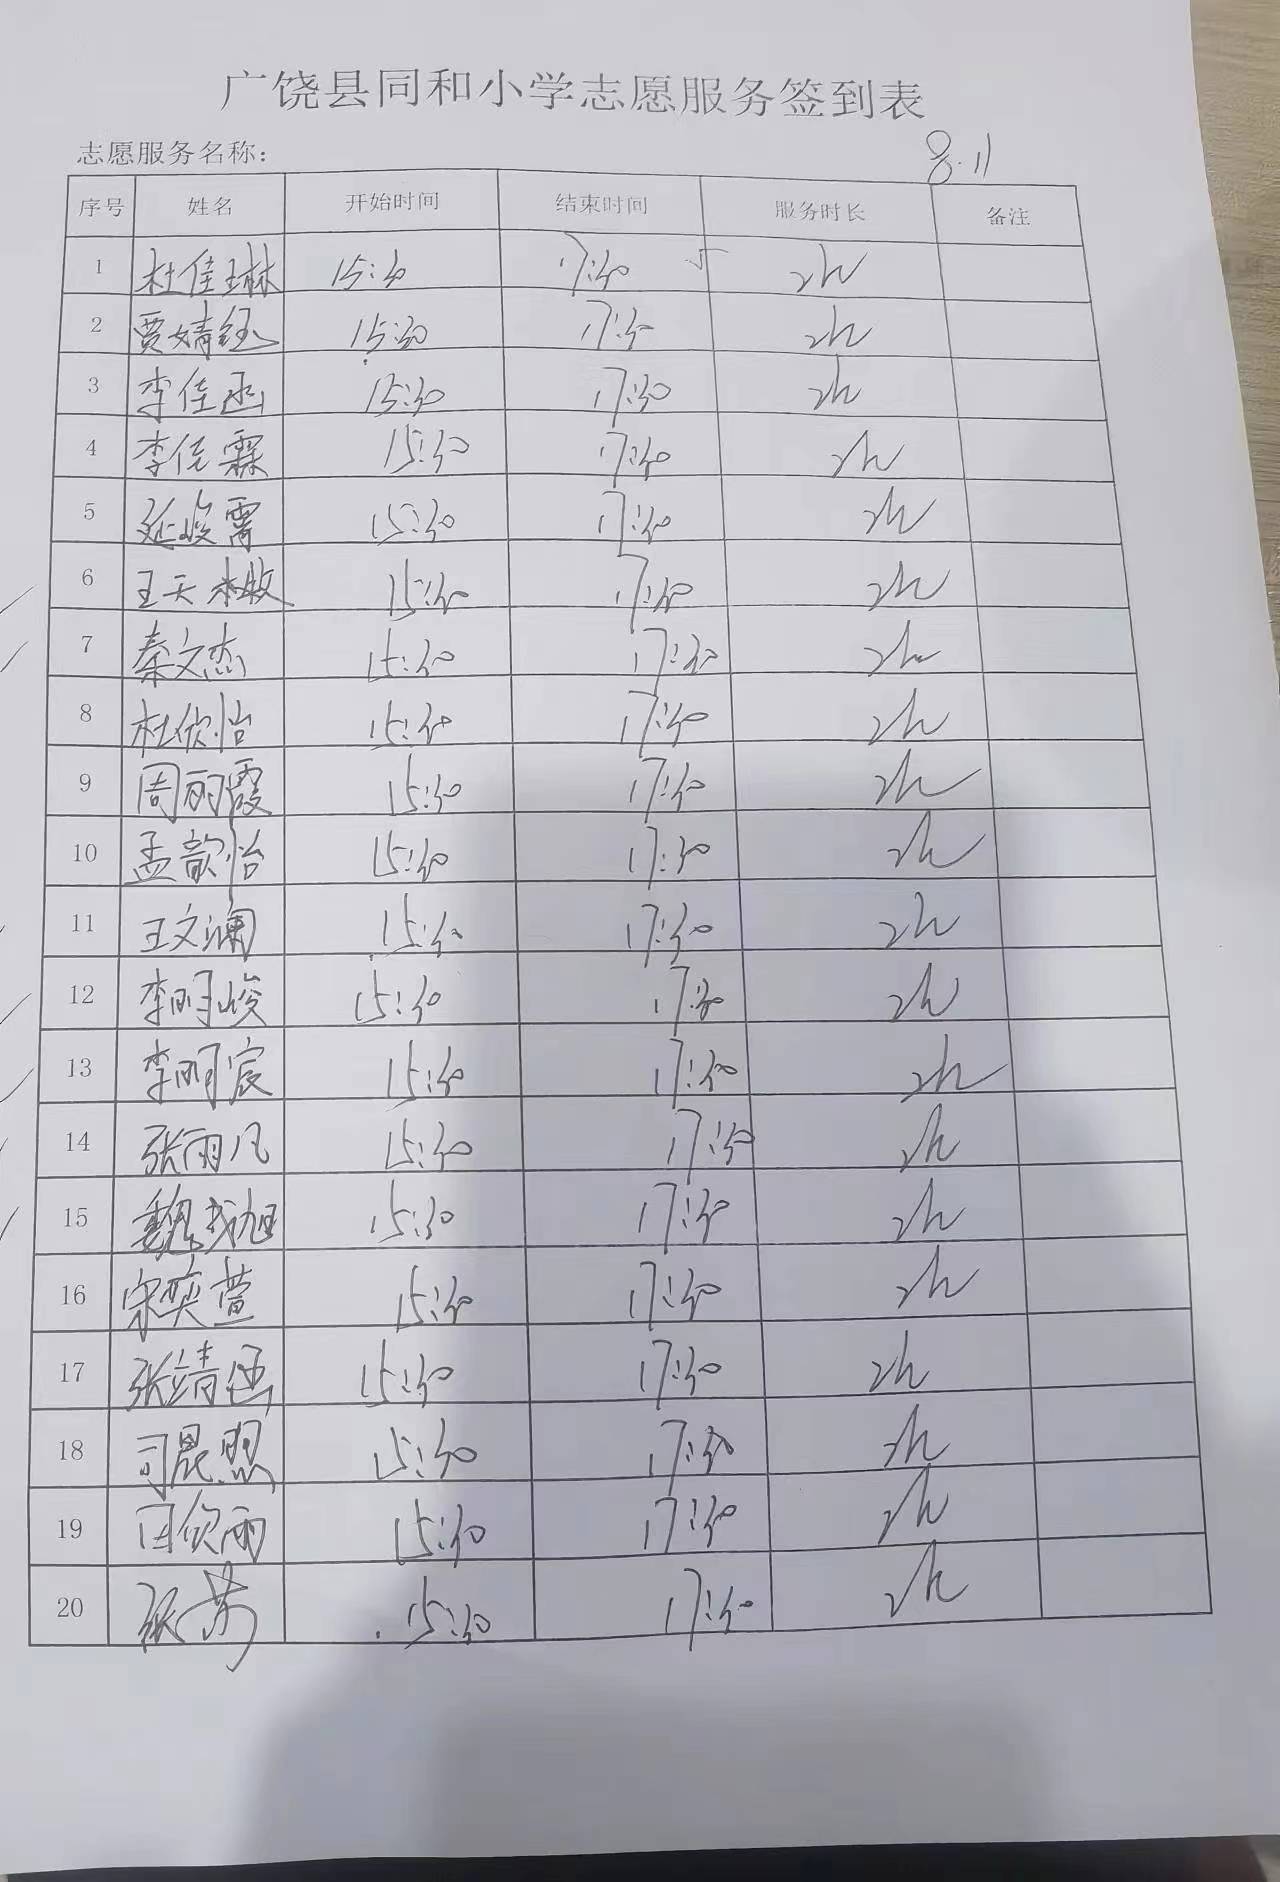 广饶县同和小学志愿服务签到表
志愿服务名称： 8.11
序号 姓名 开始时间 结束时间 服务时长 备注
1 杜佳琳 15:30 17:30 2h
2 贾婧钰 15:30 17:30 2h
3 李佳函 15:30 17:30 2h
4 李佳霖 15:30 17:30 2h
5 延峻霄 15:30 17:30 2h
6 王天 15:30 17:30 2h
7 秦文杰 15:30 17:30 2h
8 杜欣怡 15:30 17:30 2h
9 周丽霞 15:30 17:30 2h
10 孟歆怡 15:30 17:30 2h
11 王文澜 15:30 17:30 2h
12 李明峻 15:30 17:30 2h
13 李明宸 15:30 17:30 2h
14 张雨凡 15:30 17:30 2h
15 魏 旭 15:30 17:30 2h
16 宋奕萱 15:30 17:30 2h
17 张靖涵 15:30 17:30 2h
18 司晨 15:30 17:30 2h
19 田欣雨 15:30 17:30 2h
20 张芳 15:30 17:30 2h